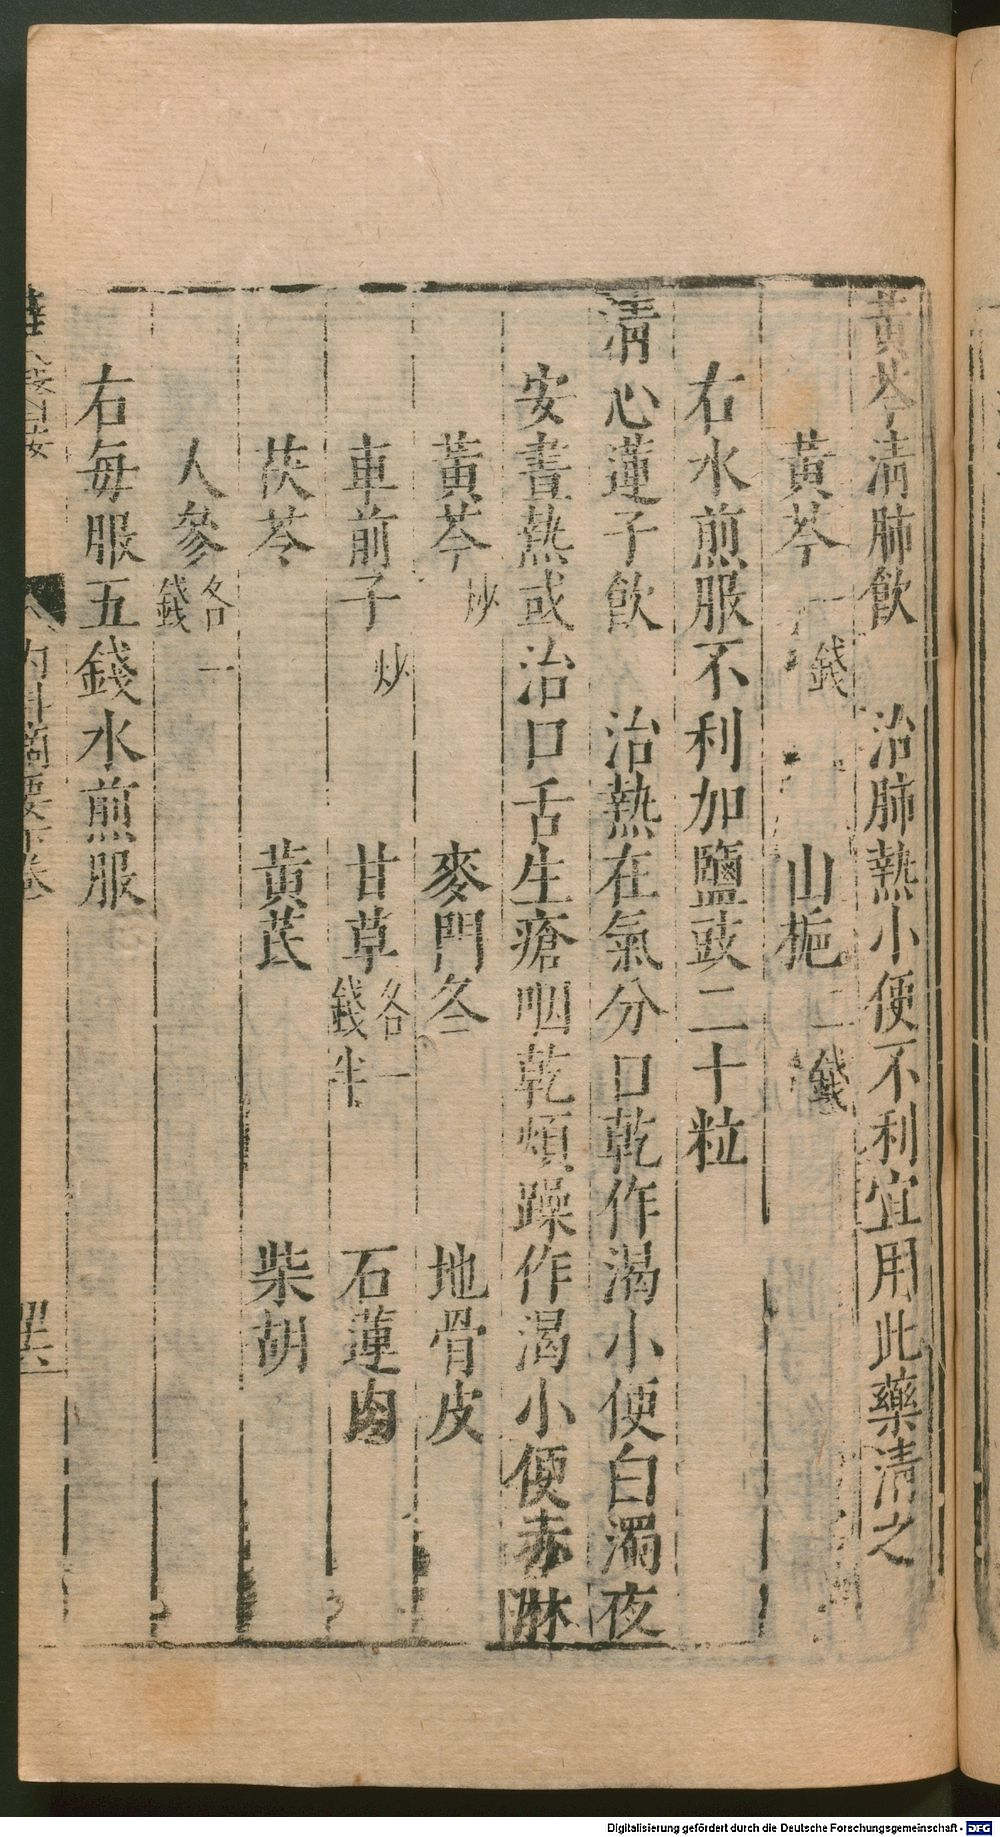 黃芩清肺飲　治肺熱小便不利宜用此藥清之
黃芩一錢　山梔二錢
右水煎服不利加鹽豉二十粒
清心蓮子飲　治熱在氣分口乾作渴小便白濁夜
安晝熱或治口舌生瘡咽乾煩躁作渴小便赤淋
黃芩炒　麥門冬　地骨皮
車前子炒　甘草各一錢半　石蓮肉
茯苓　黃芪　柴胡
人參各一錢
右每服五錢水煎服
內科摘要下卷
Digitalisierung gefördert durch die Deutsche Forschungsgemeinschaft - DFG